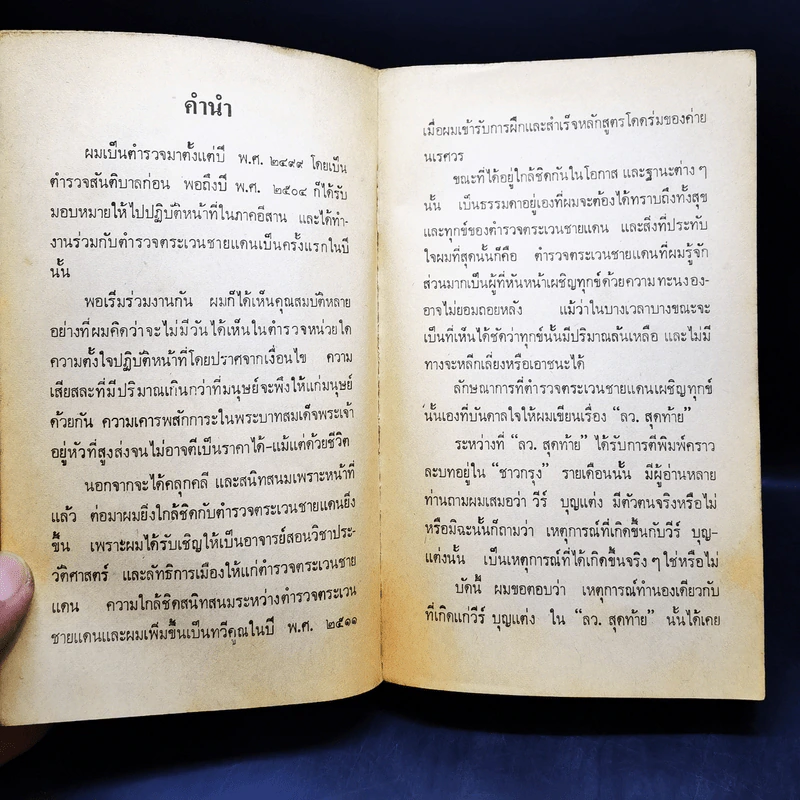 คำนำ
ผมเป็นตำรวจมาตั้งแต่ปี พ.ศ. ๒๔๙๙ โดยเป็น
ตำรวจสันติบาลก่อน พอถึงปี พ.ศ. ๒๕๐๔ ก็ได้รับ
มอบหมายให้ไปปฏิบัติหน้าที่ในภาคอีสาน และได้ทำ-
งานร่วมกับตำรวจตระเวนชายแดนเป็นครั้งแรกในปี
นั้น
พอเริ่มร่วมงานกัน ผมก็ได้เห็นคุณสมบัติหลาย
อย่างที่ผมคิดว่าจะไม่มีวันได้เห็นในตำรวจหน่วยใด
ความตั้งใจปฏิบัติหน้าที่โดยปราศจากเงื่อนไข ความ
เสียสละที่มีปริมาณเกินกว่าที่มนุษย์จะพึงให้แก่มนุษย์
ด้วยกัน ความเคารพสักการะในพระบาทสมเด็จพระเจ้า
อยู่หัวที่สูงส่งจนไม่อาจตีเป็นราคาได้-แม้แต่ด้วยชีวิต
นอกจากจะได้คลุกคลี และสนิทสนมเพราะหน้าที่
แล้ว ต่อมาผมยิ่งใกล้ชิดกับตำรวจตระเวนชายแดนยิ่ง
ขึ้น เพราะผมได้รับเชิญให้เป็นอาจารย์สอนวิชาประ-
วัติศาสตร์ และลัทธิการเมืองให้แก่ตำรวจตระเวนชาย
แดน ความใกล้ชิดสนิทสนมระหว่างตำรวจตระเวน
ชายแดนและผมเพิ่มขึ้นเป็นทวีคูณในปี พ.ศ. ๒๕๑๑
เมื่อผมเข้ารับการฝึกและสำเร็จหลักสูตรโดดร่มของค่าย
นเรศวร
ขณะที่ได้อยู่ใกล้ชิดกันในโอกาส และฐานะต่าง ๆ
นั้น เป็นธรรมดาอยู่เองที่ผมจะต้องได้ทราบถึงทั้งสุข
และทุกข์ของตำรวจตระเวนชายแดน และสิ่งที่ประทับ
ใจผมที่สุดนั้นก็คือ ตำรวจตระเวนชายแดนที่ผมรู้จัก
ส่วนมากเป็นผู้ที่หันหน้าเผชิญทุกข์ด้วยความทะนงอง-
อาจไม่ยอมถอยหลัง แม้ว่าในบางเวลาบางขณะจะ
เป็นที่เห็นได้ชัดว่าทุกข์นั้นมีปริมาณล้นเหลือ และไม่มี
ทางจะหลีกเลี่ยงหรือเอาชนะได้
ลักษณาการที่ตำรวจตระเวนชายแดนเผชิญทุกข์
นั้นเองที่บันดาลใจให้ผมเขียนเรื่อง “ลว. สุดท้าย”
ระหว่างที่ “ลว. สุดท้าย” ได้รับการตีพิมพ์คราว
ละบทอยู่ใน “ชาวกรุง” รายเดือนนั้น มีผู้อ่านหลาย
ท่านถามผมเสมอว่า วีร์ บุญแต่ง มีตัวตนจริงหรือไม่
หรือมิฉะนั้นก็ถามว่า เหตุการณ์ที่เกิดขึ้นกับวีร์ บุญ-
แต่งนั้น เป็นเหตุการณ์ที่ได้เกิดขึ้นจริง ๆ ใช่หรือไม่
บัดนี้ ผมขอตอบว่า เหตุการณ์ทำนองเดียวกับ
ที่เกิดแก่วีร์ บุญแต่ง ใน “ลว. สุดท้าย” นั้นได้เคย